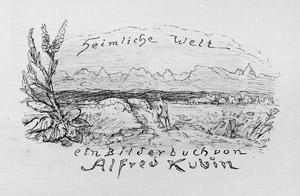 Heimliche Welt
ein Bilderbuch von
Alfred Kubin